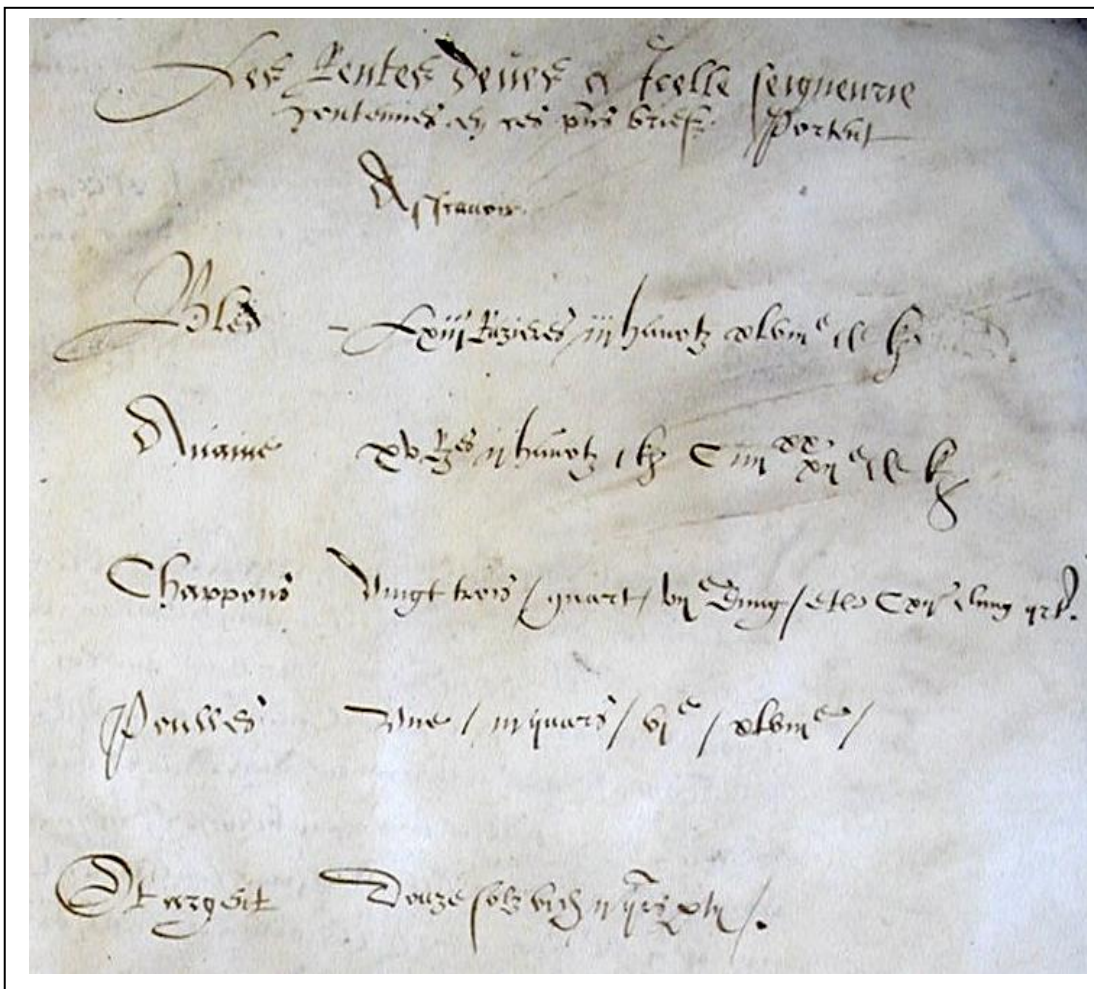 Les Rentes deues a Icelle seigneurie
contenues en ces pñs briefz Portent
Asscavoir
Bled Lxiij Razieres iij havotz xlviije
Avaine xv Rzes ij havotz C iiij xx xije
Chappons Vingt trois / quart / vije Dung / et le Cxije dung qrt.
Poulles Une / iij quars / vje / xlviije /
Et argent Douze solz